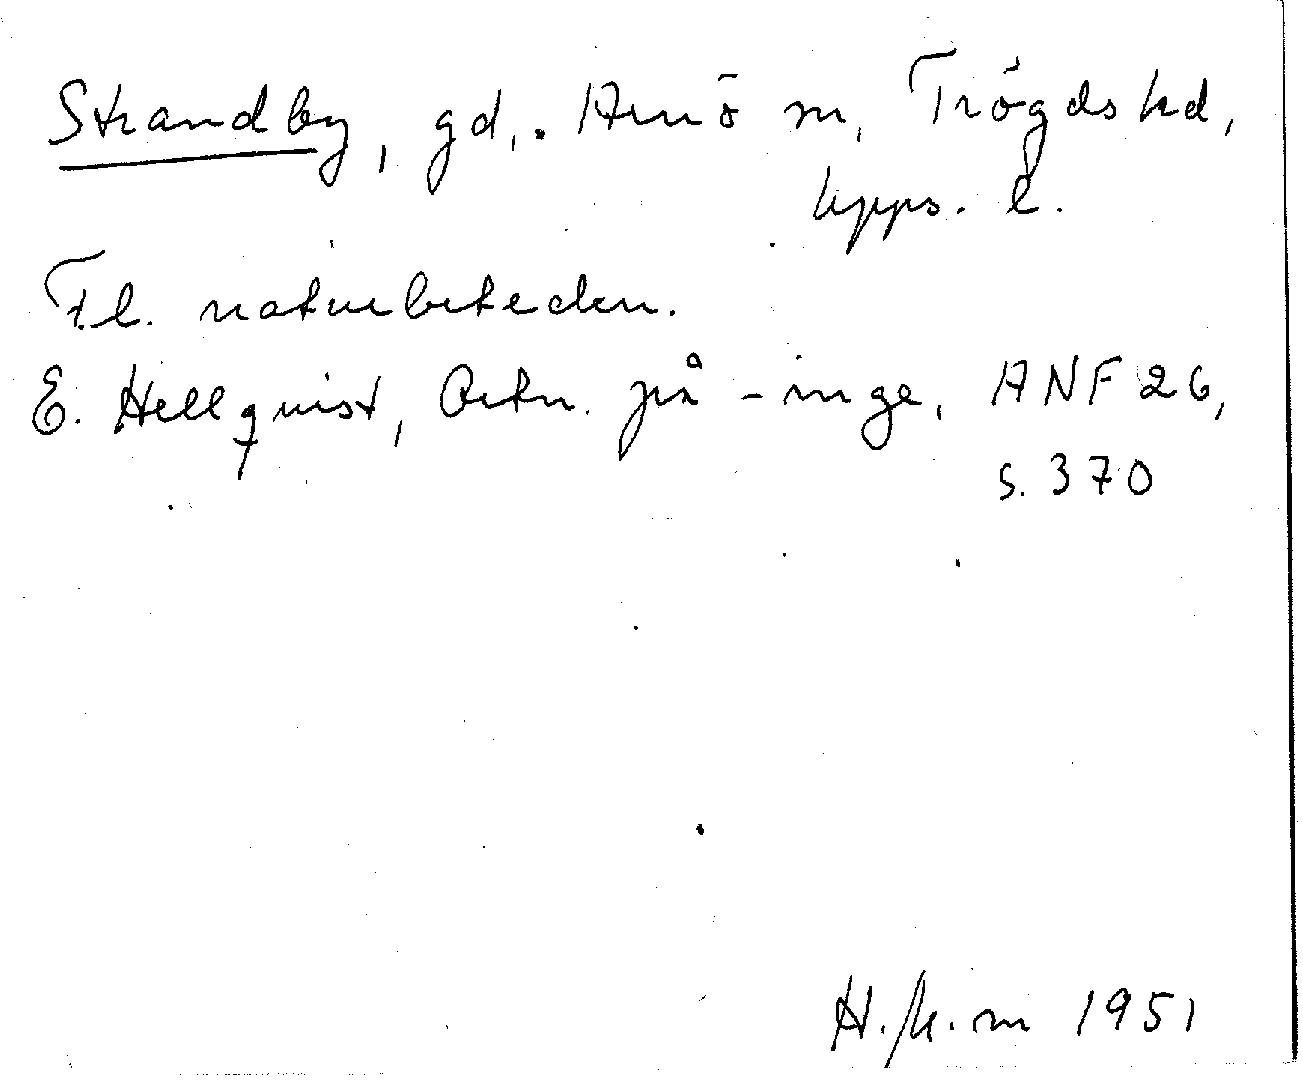 Strandby, gd,. Arnö sn, Trögds hd,
Upps. l.
T.l. naturbeteckn.
E. Hellquist, Ortn. på -inge, ANF 26,
s. 370
1951